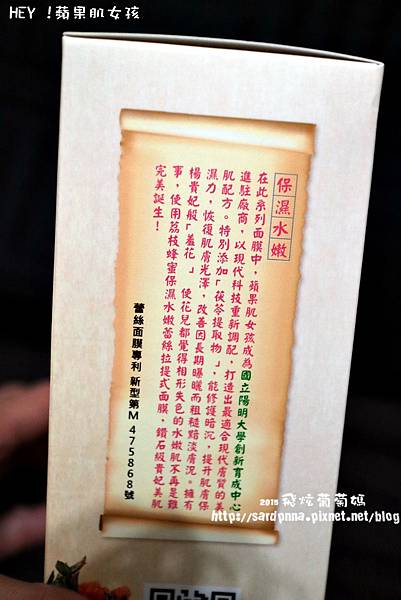 HEY !蘋果肌女孩
保濕水嫩
在此系列面膜中，蘋果肌女孩成為國立陽明大學創新育成中心
進駐廠商，以現代科技重新調配，打造出最適合現代膚質的美
肌配方。特別添加「茯苓提取物」，能修護暗沉，提升肌膚保
濕力，恢復肌膚光澤，改善因長期曝曬而粗糙黯淡膚況。擁有
楊貴妃般「羞花」 使花兒都覺得相形失色的水嫩肌不再是難
事，使用荔枝蜂蜜保濕水嫩蕾絲拉提式面膜，鑽石級貴妃美肌
完美誕生！
蕾絲面膜專利 新型第M 475868號
2015 飛炫葡萄媽
http://sardpnna.pixnet.net/blog